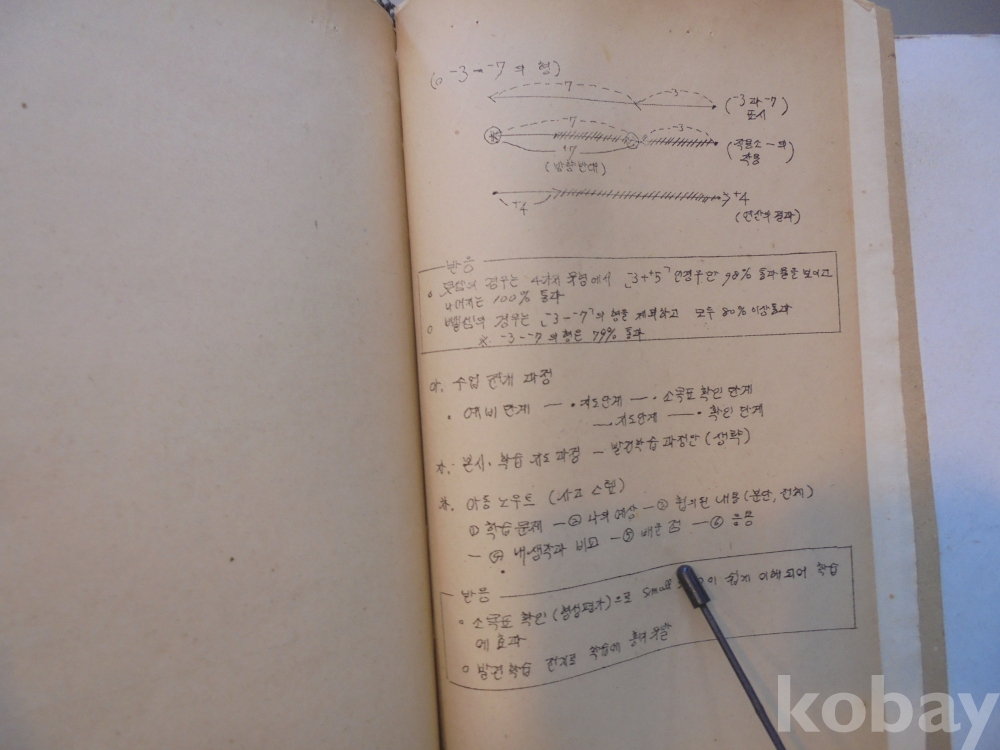 (o ⁻3 - ⁻7 의 형)
-7
-3
(⁻3 과 ⁻7 표시)
-7
-3
+7
(방향반대)
(작용소 -의 작용)
+4
+4
(연산의 결과)
반응
o 덧셈의 경우는 4가지 유형에서 「⁻3+⁺5」인경우만 98% 통과율을 보이고
나머지는 100% 통과
o 뺄셈의 경우는 「⁻3-⁻7」의 형을 제외하고 모두 80% 이상통과
※. ⁻3-⁻7 의 형은 79% 통과
아. 수업 전개 과정
· 예비 단계 — · 지도단계 — · 소목표 확인 단계
— 지도단계 — · 확인 단계
자. 본시· 학습 지도 과정 — 발견학습 과정안 (생략)
차. 아동 노우트 (사고 스텝)
① 학습 문제 — ② 나의 예상 — ③ 협의된 내용 (분단, 전체)
— ④ 내생각과 비교 — ⑤ 배운 점 — ⑥ 응용
반응
o 소목표 확인 (형성평가)으로 small 이 쉽게 이해되어 학습
에 효과
o 발견학습 전개로 학습에 흥미유발
kobay